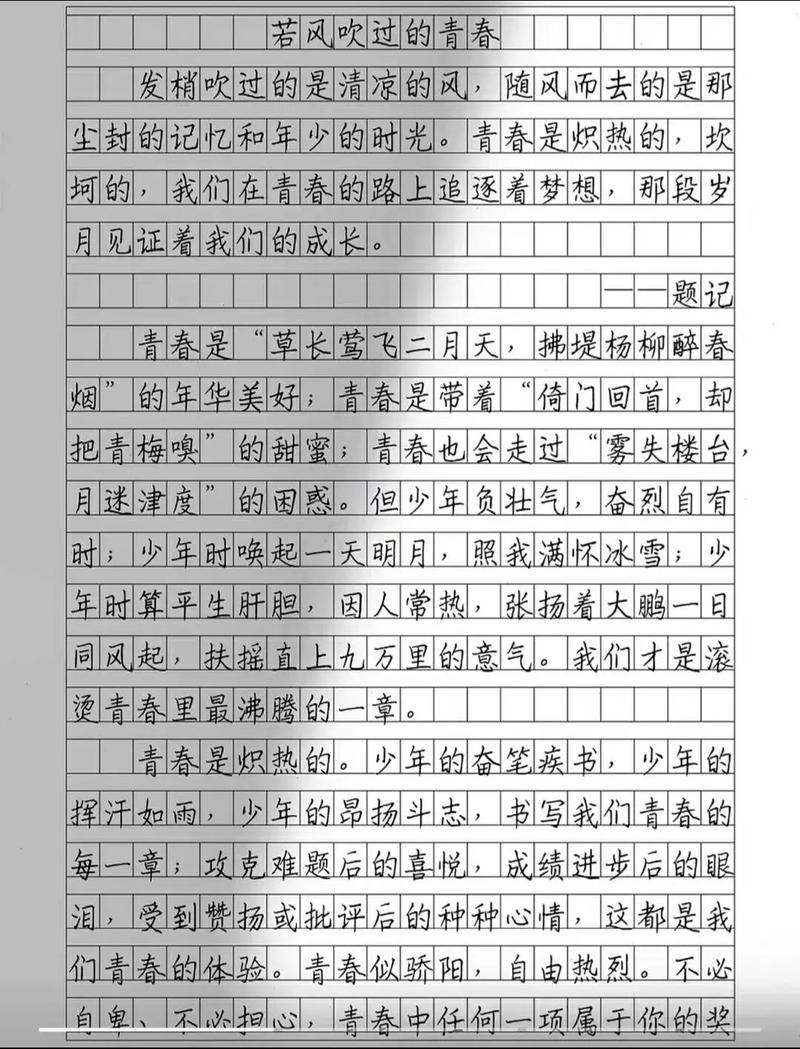 若风吹过的青春
发梢吹过的是清凉的风，随风而去的是那
尘封的记忆和年少的时光。青春是炽热的，坎
坷的，我们在青春的路上追逐着梦想，那段岁
月见证着我们的成长。
——题记
青春是“草长莺飞二月天，拂堤杨柳醉春
烟”的年华美好；青春是带着“倚门回首，却
把青梅嗅”的甜蜜；青春也会走过“雾失楼台，
月迷津度”的困惑。但少年负壮气，奋烈自有
时；少年时唤起一天明月，照我满怀冰雪；少
年时算平生肝胆，因人常热，张扬着大鹏一日
同风起，扶摇直上九万里的意气。我们才是滚
烫青春里最沸腾的一章。
青春是炽热的。少年的奋笔疾书，少年的
挥汗如雨，少年的昂扬斗志，书写我们青春的
每一章；攻克难题后的喜悦，成绩进步后的眼
泪，受到赞扬或批评后的种种心情，这都是我
们青春的体验。青春似骄阳，自由热烈。不必
自卑、不必担心，青春中任何一项属于你的奖